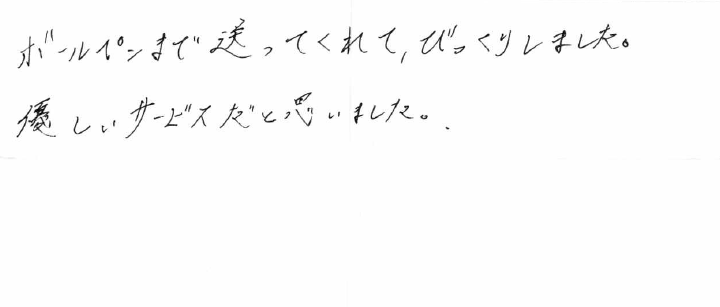 ボールペンまで送ってくれて,びっくりしました。
優しいサービスだと思いました。